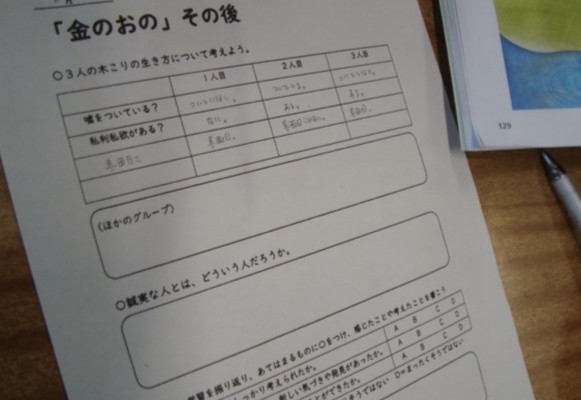 「金のおの」その後
○3人の木こりの生き方について考えよう。
1人目 2人目 3人目
嘘をついている? ついていない。 ついている。 ついていない。
私利私欲がある? ない。 ある。 ある。
真面目さ 真面目。 真面目じゃない。 真面目。
(ほかのグループ)
○誠実な人とは、どういう人だろうか。
学習を振り返り、あてはまるものに○をつけ、感じたことや考えたことを書こう
しっかり考えられたか。 A B C D
新しい気づきや発見があったか。 A B C D
ことができたか。 A B C D
そうではない D=まったくそうではない
129